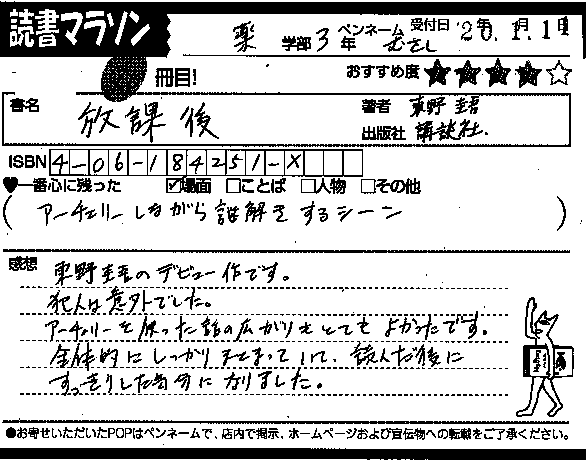 読書マラソン
薬 学部 3 年 ペンネーム むさし 受付日 '20年 1月 1日
冊目!
おすすめ度 ★★★★☆
書名 放課後
著者 東野 圭吾
出版社 講談社.
ISBN 4-06-184251-X
♥一番心に残った ☑場面 □ことば □人物 □その他
(アーチェリーしながら謎解きするシーン)
感想 東野圭吾のデビュー作です。
犯人は意外でした。
アーチェリーを使った話の広がりもとてもよかったです。
全体的にしっかりまとまっていて、読んだ後に
すっきりした気分になりました。
●お寄せいただいたPOPはペンネームで、店内で掲示、ホームページおよび宣伝物への転載をご了承ください。